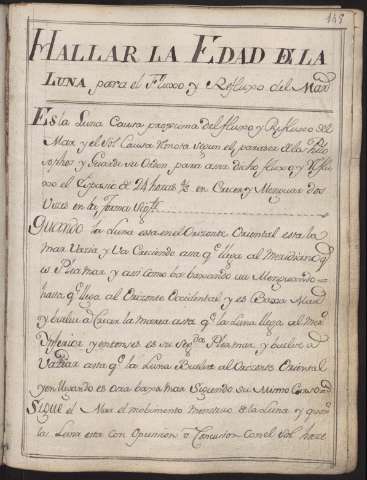 148
HALLAR LA EDAD DE LA
LUNA para el Fluxo y Refluxo del Mar
Es la Luna Causa proxima del fluxo y Refluxo del
Mar y el Sol Causa Remota segun el parecer de los Philo
sophos y Guarda su Orden para aser dicho fluxo y Reflu
xo el Espasio de 24 horas en Creser y Menguar dos
Veces en la forma Sigte
Quando la Luna esta en el Orisonte Oriental esta la
mar Vasia y Va Creciendo asta qe llega al Meridiano qe
es Pleamar y asi como ba baxando su Menguando
hasta qe llega al Orisonte Occidental y es Baxa Mar
y buelve a Crecer la marea asta qe la Luna llega al mer
Ynferior y entonses es su Segda Pleamar y buelve a
Vasiar asta qe la Luna Buelve al Orisonte Oriental
y en llegando es otra baxa mar Siguendo su Mismo Curso
Sigue el Mar el mobimento menstruo de la Luna y quando
la Luna esta con Oposision o Conjuncion con el Sol hase